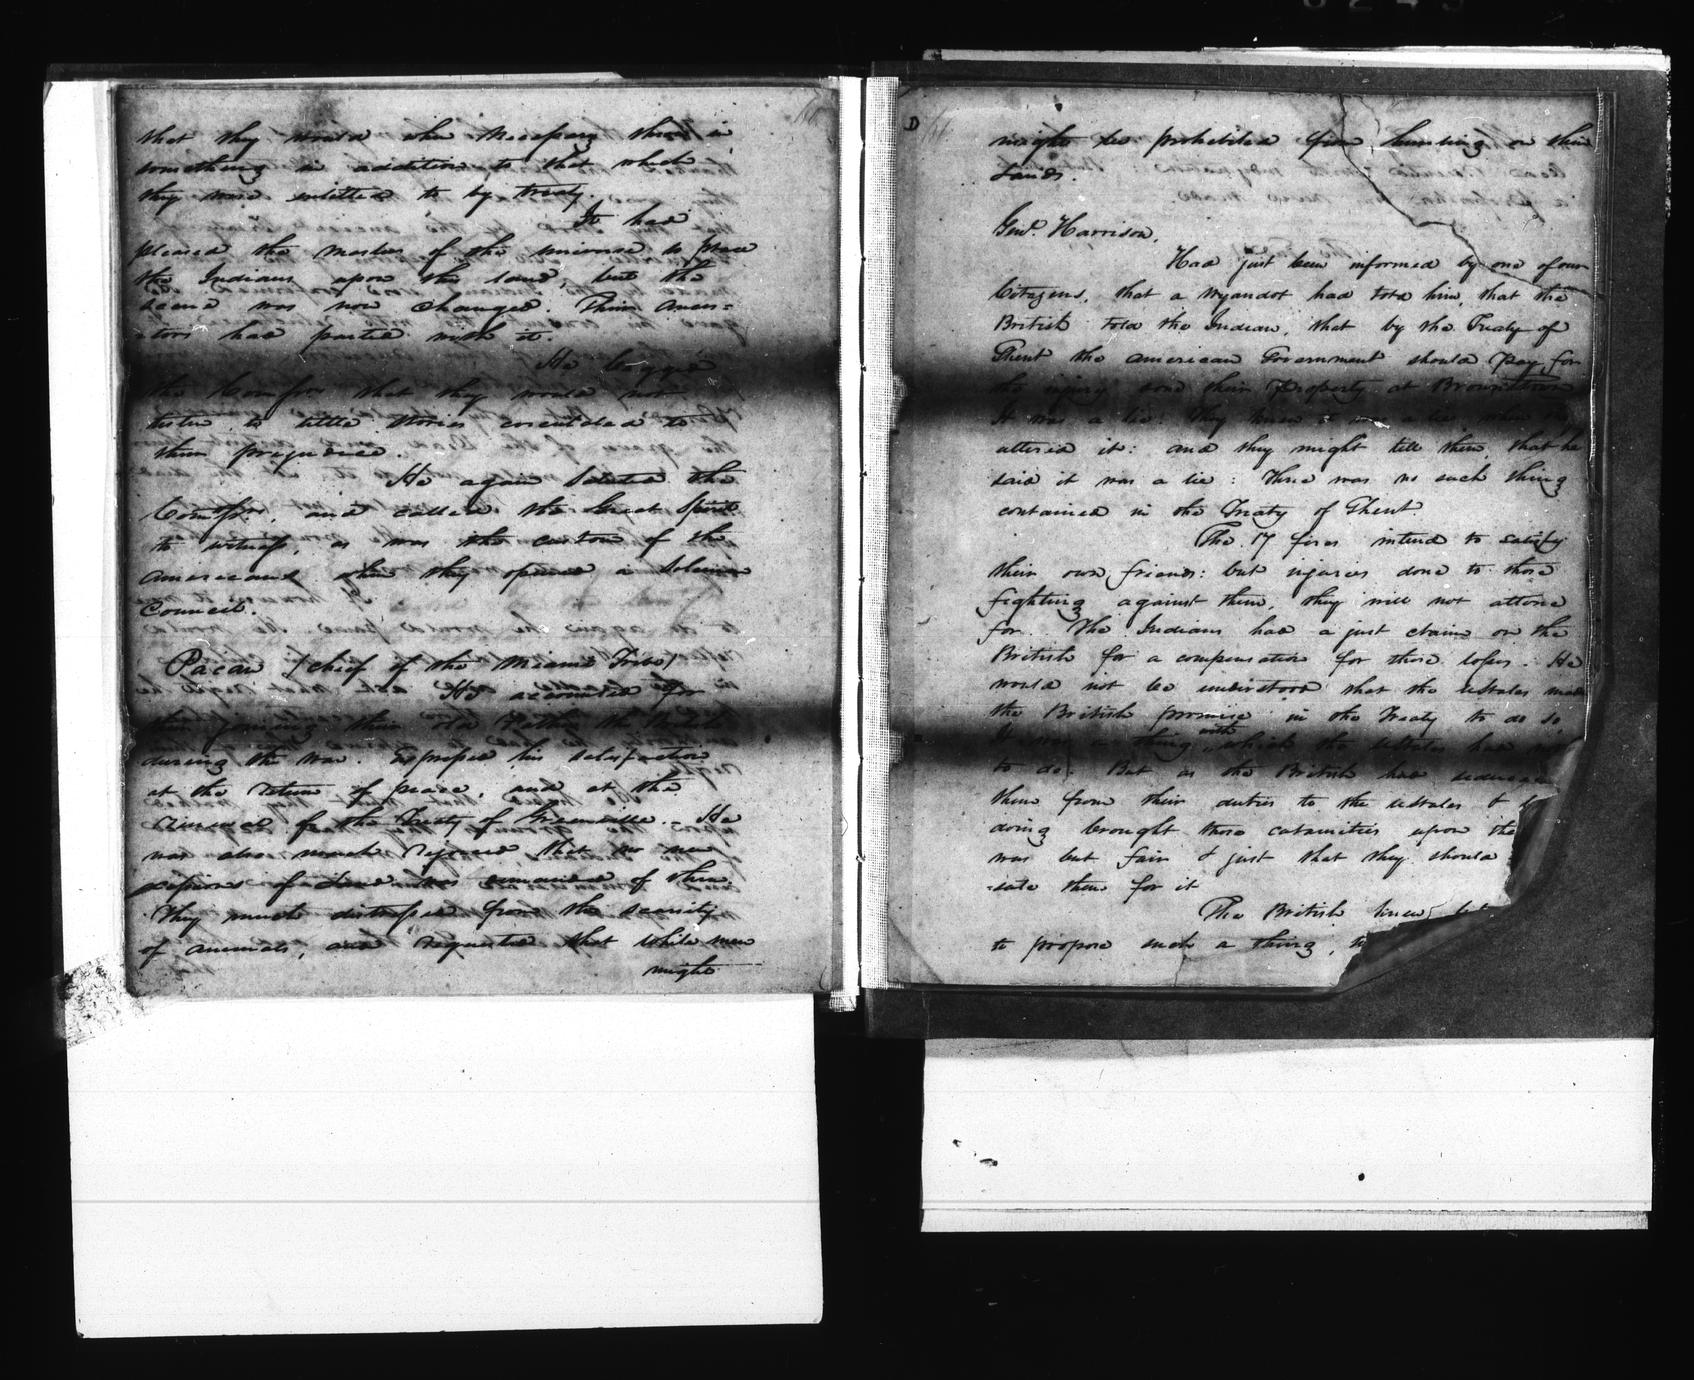 that they would when necessary throw in
something in addition to that which
they were entitled to by treaty.
It had
pleased the master of the universe to place
the Indians upon this land, but the
scene was now changed. Their ances=
=tors had parted with it.
He begged
the Comssrs that they would not
listen to little stories circulated to
their prejudice.
He again saluted the
Comssrs, and called the Great Spirit
to witness, as was the custom of the
Americans when they opened a solemn
Council.
Pacan (chief of the Miami Tribe)
He accounted for
their joining their old Father the British
during the war. Expressed his satisfaction
at the return of peace, and at the
renewal of the Treaty of Greenville. - He
was also much rejoiced that no new
cessions of Land was demanded of them.
They much distressed from the scarcity
of animals, and requested that white men
might
D
might be prohibited from hunting on their
Lands.
Genl. Harrison,
Had just been informed by one of our
Citizens, that a Wyandot had told him, that the
British told the Indian, that by the Treaty of
Ghent the American Government should pay for
the injury done their property at Brownstown
It was a lie: They knew it was a lie when they
uttered it: and they might tell them, that he
said it was a lie: There was no such thing
contained in the Treaty of Ghent.
The 17 fires intend to satisfy
their own friends: but injuries done to those
fighting against them, they will not attone
for. The Indians had a just claim on the
British for a compensation for those losses. He
would not be understood that the Ustates made
the British promise in the Treaty to do so,
It was a thing with which the Ustates had not
to do. But as the British had seduced
them from their duties to the Ustates &
doing brought those calamities upon the
was but fair & just that they should
=sate them for it
The British knew
to propose such a thing,